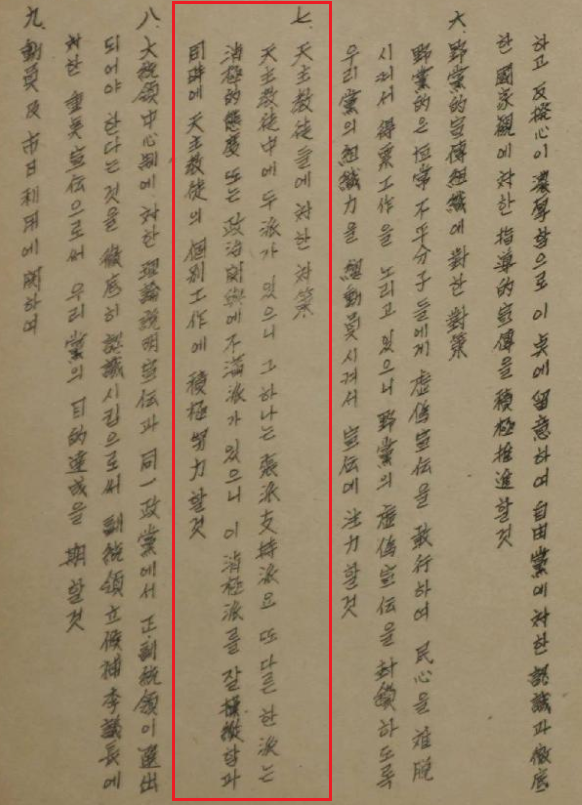 하고 反撥心이 濃厚함으로 이 点에 留意하여 自由黨에 対한 認識과 徹底
한 國家觀에 対한 指導的 宣傳을 積極推進할것
六、野黨的宣傳組織에 對한 對策
野黨的은 恒常 不平分子들에게 虛僞宣伝을 敢行하여 民心을 離脫
시켜서 得票工作을 노리고 있으니 野黨의 虛僞宣伝을 封鎖하도록
우리黨의 組織力을 總動員시켜서 宣伝에 注力할것
七、天主教徒들에 対한 対策
天主教徒中에 두派가 있으니 그 하나는 張派支持派요 또 다른 한 派는
消極的態度 또는 政治関與에 不滿派가 있으니 이 消極派를 잘 하과
同時에 天主教徒의 個別工作에 積極努力할것
八、大統領中心制에 対한 理論說明宣伝과 同一政黨에서 正、副統領이 選出
되어야 한다는것을 徹底히 認識시킴으로써 副統領立候補李議長에
対한 重臭宣伝으로써 우리黨의 目的達成을 期할것
九、動員及市日利用에 関하여